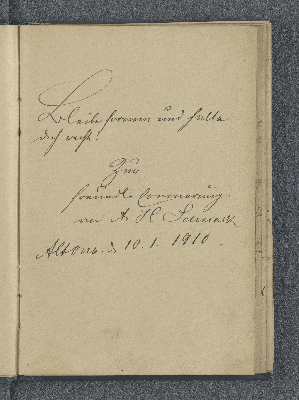 Bleibe fromm und halte
dich recht.
Zur
freundl. Erinnerung
an A. H.
Altona d. 10. 1. 1910.